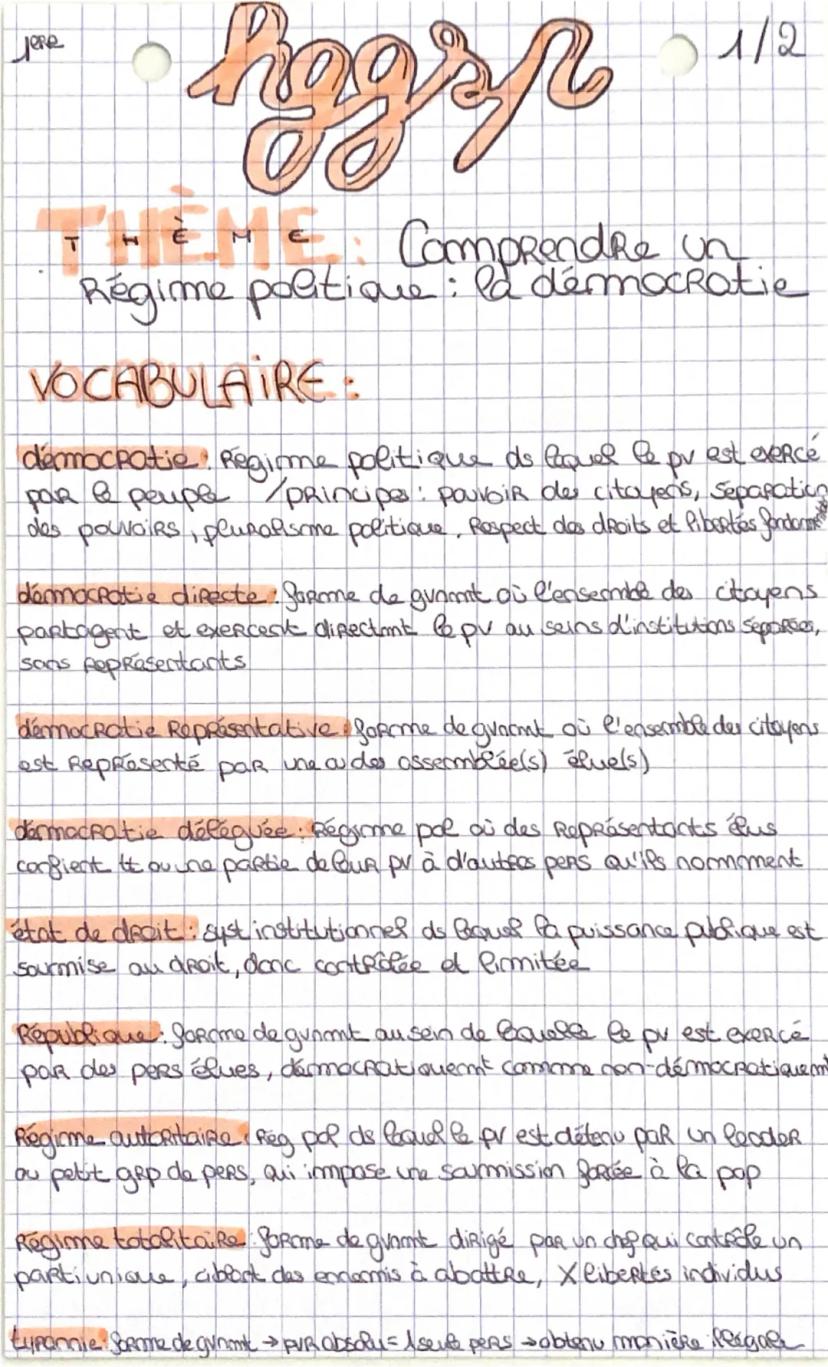 1ere
hggsp
1/2
THÈME : Comprendre un
Régime politique : la démocratie
VOCABULAIRE :
démocratie : Régime politique ds lequel le pv est exercé
par le peuple / principes : pouvoir des citoyens, séparation
des pouvoirs, pluralisme politique, Respect des droits et libertés fondamt
démocratie directe : forme de gvnmt où l'ensemble des citoyens
partagent et exercent directmt le pv au seins d'institutions séparées,
sans représentants
démocratie Représentative : forme de gvnmt où l'ensemble des citoyens
est Représenté par une ou des assemblée(s) élue(s)
démocratie déléguée : Régime pol où des Représentants élus
confient tt ou une partie de leur pv à d'autres pers qu'ils nomment
état de droit : syst institutionnel ds lequel la puissance publique est
soumise au droit, donc contrôlée et limitée
République : forme de gvnmt au sein de laquelle le pv est exercé
par des pers élues, démocratiquemt comme non-démocratiquemt
Régime autoritaire : Rég pol ds lequel le pv est détenu par un leader
ou petit grp de pers, qui impose une soumission forcée à la pop
Régime totalitaire : forme de gvnmt dirigé par un chef qui contrôle un
parti unique, ciblant des ennemis à abattre, X libertés individus
tyrannie : forme de gvnmt → pvr absolu = 1 seule pers → obtenu manière illégale